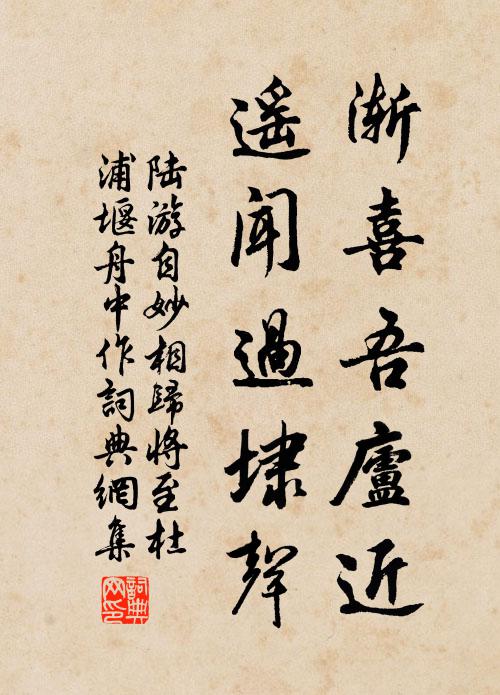 渐喜吾廬近
遥闻過埭聲
陆游自妙相歸将至杜
浦堰舟中作詞典網集
詞典网印